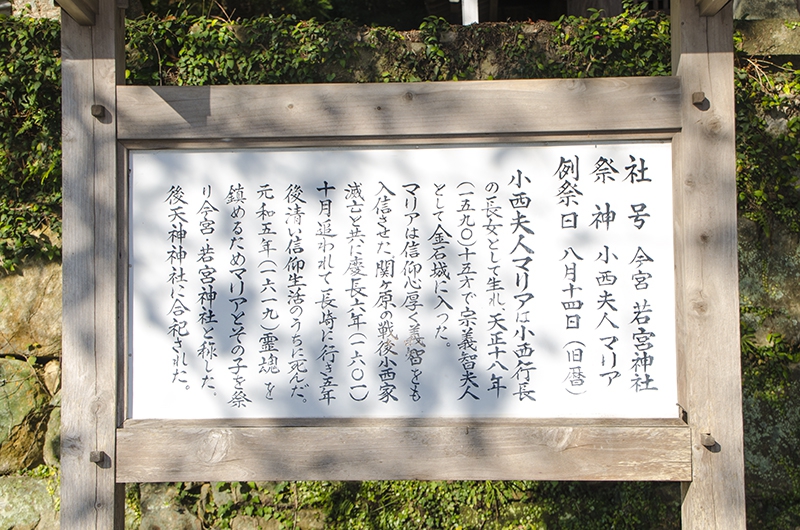 社号 今宮 若宮神社
祭神 小西夫人 マリア
例祭日 八月十四日（旧暦）
小西夫人マリアは小西行長
の長女として生れ天正十八年
（一五九〇）十五才で宗義智夫人
として金石城に入った。
マリアは信仰心厚く義智をも
入信させた関ヶ原の戦後小西家
滅亡と共に慶長六年（一六〇一）
十月追われて長崎に行き五年
後清い信仰生活のうちに死んだ。
元和五年（一六一九）霊魂を
鎮めるためマリアとその子を祭
り今宮・若宮神社と称した、
後天神神社に合祀された。